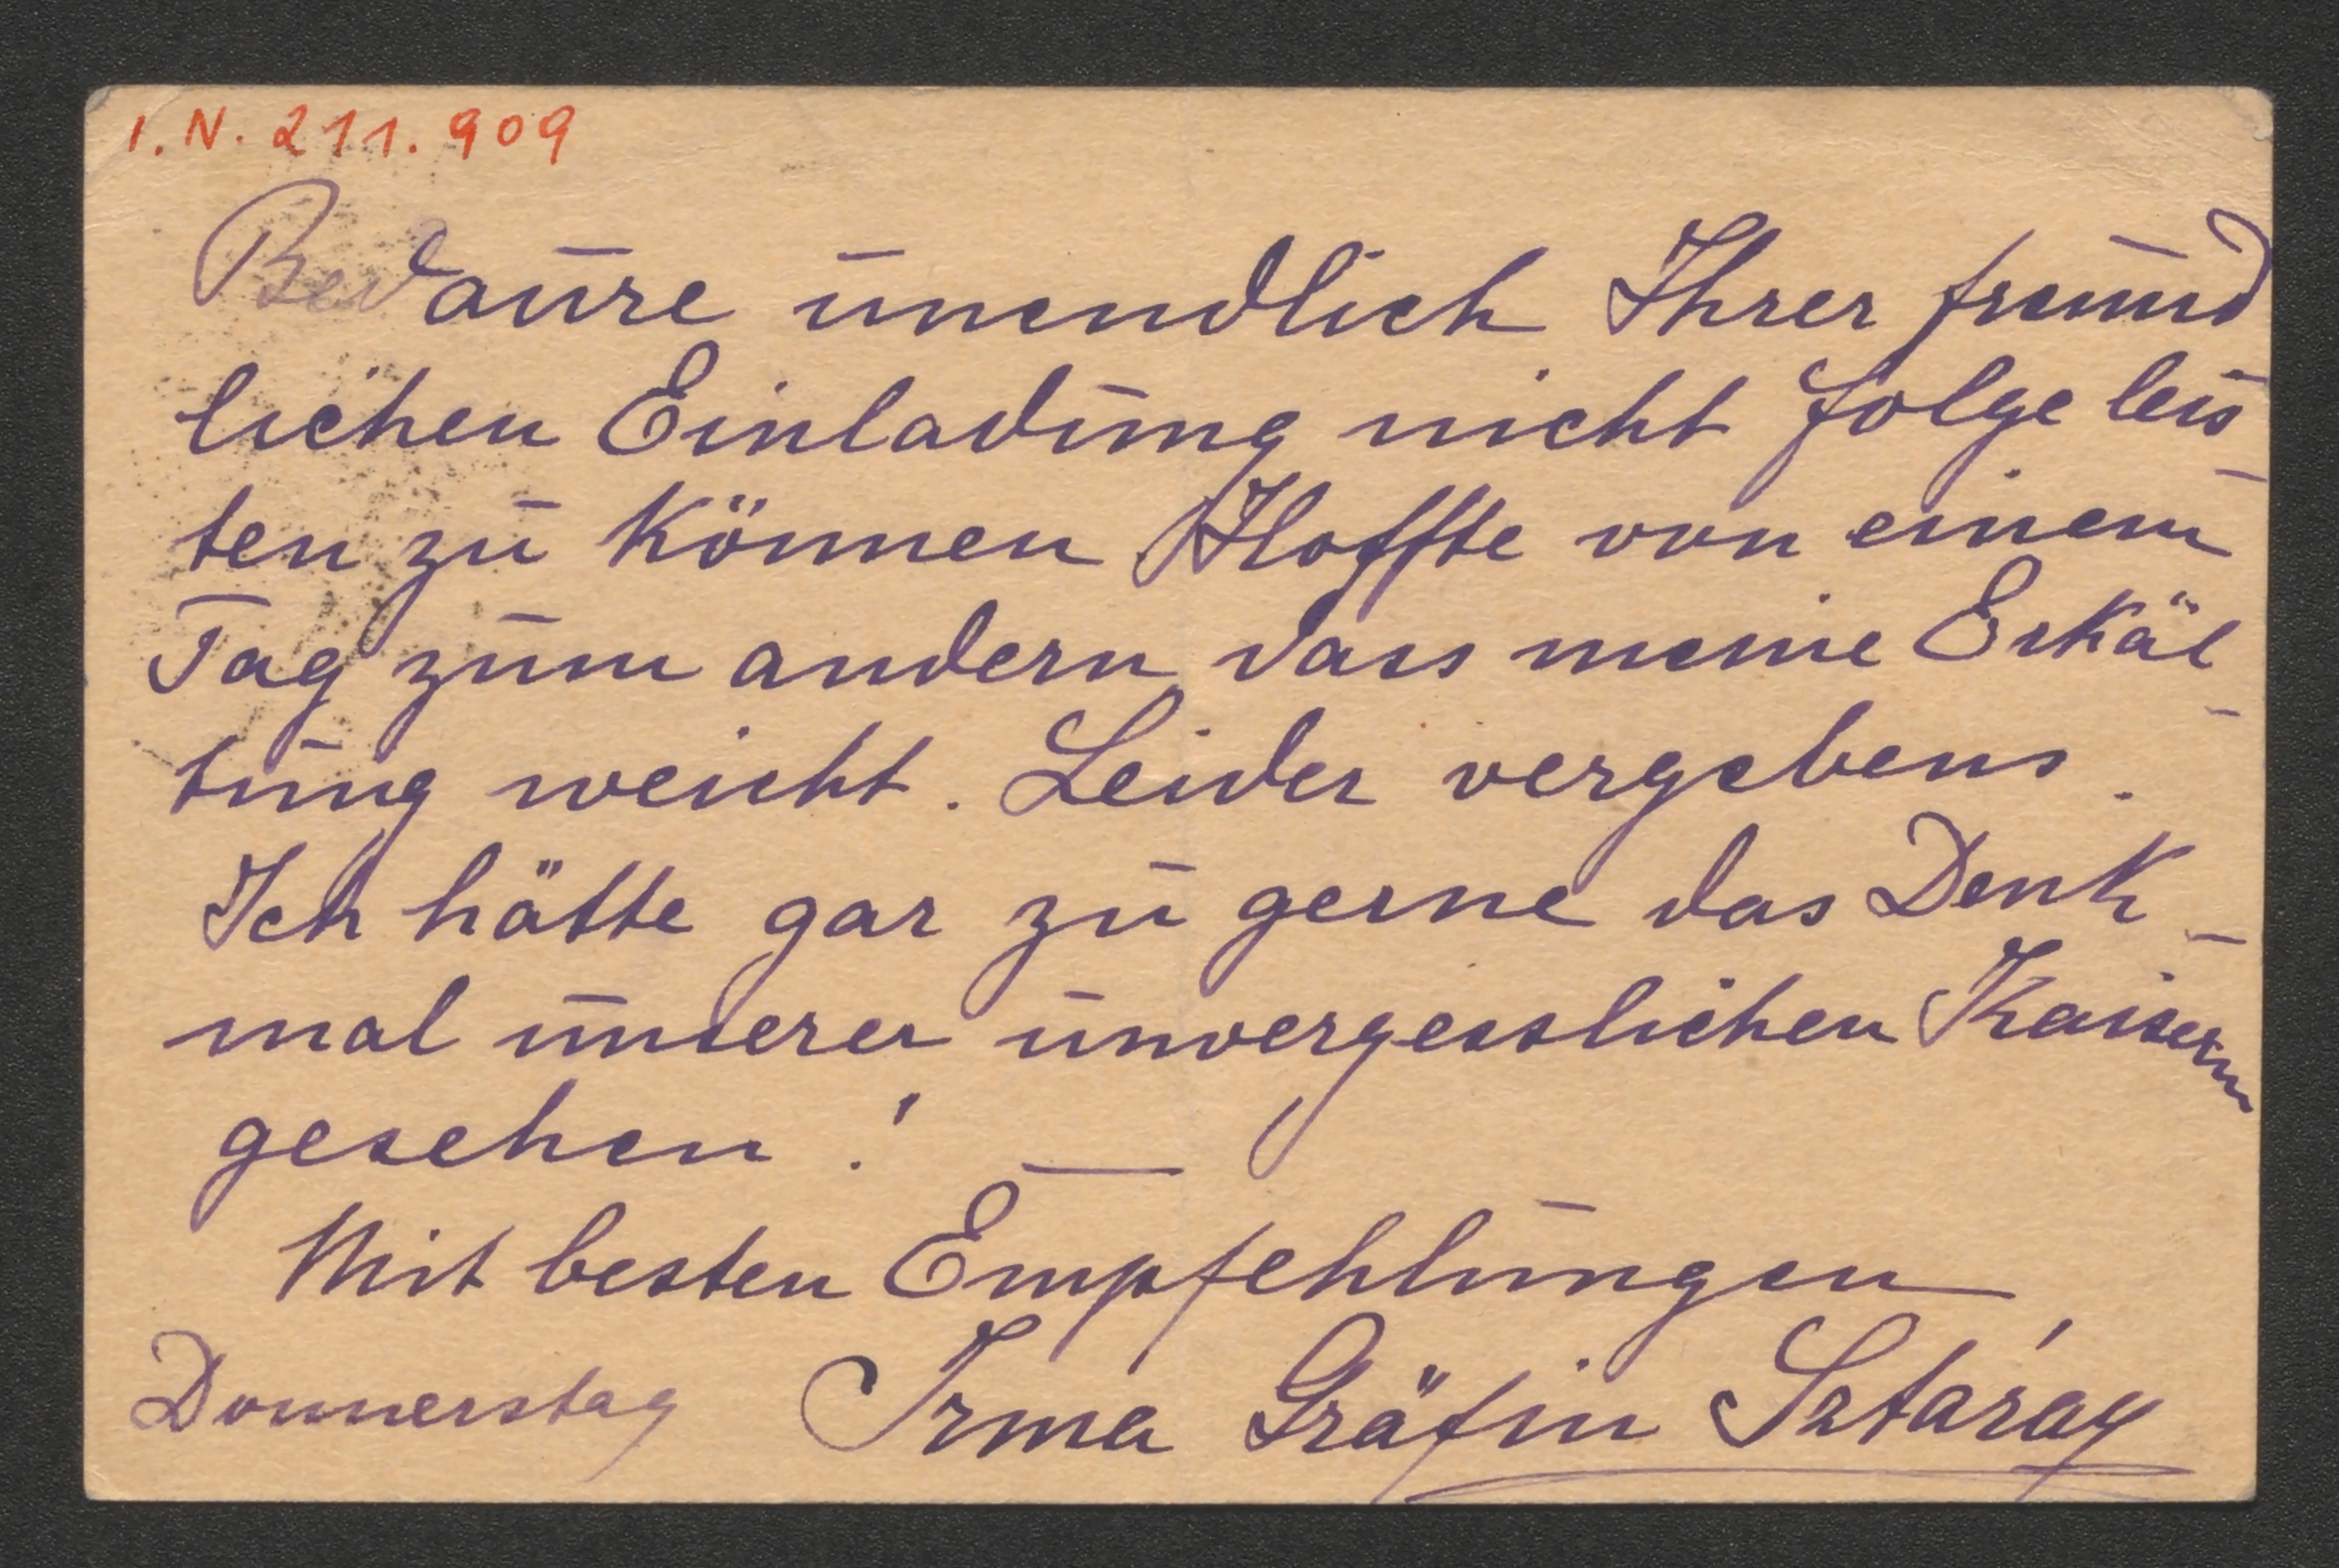 I.N. 211.909
Bedaure unendlich Ihrer freund
lichen Einladung nicht folge leis
ten zu können Hoffte von einem
Tag zum andern dass meine Erkäl-
tung weicht. Leider vergebens.
Ich hätte gar zu gerne das Denk-
mal unserer unvergesslichen Kaiserin
gesehen! —
Mit besten Empfehlungen
Donnerstag Irma Gräfin Sztáray